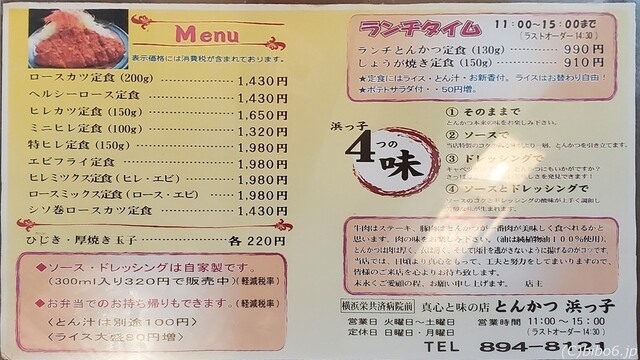 Menu
表示価格には消費税が含まれております。
ロースカツ定食 (200g) 1,430円
ヘルシーロース定食 1,430円
ヒレカツ定食 (150g) 1,650円
ミニヒレ定食 (100g) 1,320円
特ヒレ定食 (150g) 1,980円
エビフライ定食 1,980円
ヒレミックス定食 (ヒレ・エビ) 1,980円
ロースミックス定食 (ロース・エビ) 1,980円
シソ巻ロースカツ定食 1,430円
ひじき・厚焼き玉子 各 220円
◆ソース・ドレッシングは自家製です。
(300ml入り320円で販売中) (軽減税率)
◆お弁当でのお持ち帰りもできます。(軽減税率)
<とん汁は別途100円>
<ライス大盛80円増>
ランチタイム 11:00~15:00まで
(ラストオーダー14:30)
ランチとんかつ定食 (130g) 990円
しょうが焼き定食 (150g) 910円
★定食にはライス・とん汁・お新香付。ライスはお替わり自由!
★ポテトサラダ付・・50円増。
浜っ子
4つの味
① そのままで
とんかつ本来の味をお楽しみ下さい。
② ソースで
とんかつを引き立てます。
③ ドレッシングで
④ ソースとドレッシングで
牛肉はステーキ、豚肉はとんかつが一番肉が美味しく食べれるかと
思います。肉の味をお楽しみ下さい。(油は純植物油100%使用)。
とんかつは肉は厚く、衣は薄く、そして肉汁を逃がさないように揚げるのがコツです。
当店では、日頃より真心をもって、工夫と努力をしてまいりますので、
皆様のご来店を心よりお待ち致します。
末永くご愛顧の程、お願い申し上げます。 店主
横浜栄共済病院前 真心と味の店 とんかつ 浜っ子
営業日 火曜日~土曜日 営業時間 11:00~15:00
定休日 日曜日・月曜日 (ラストオーダー14:30)
TEL 894-8131
(C)bibo6.jp